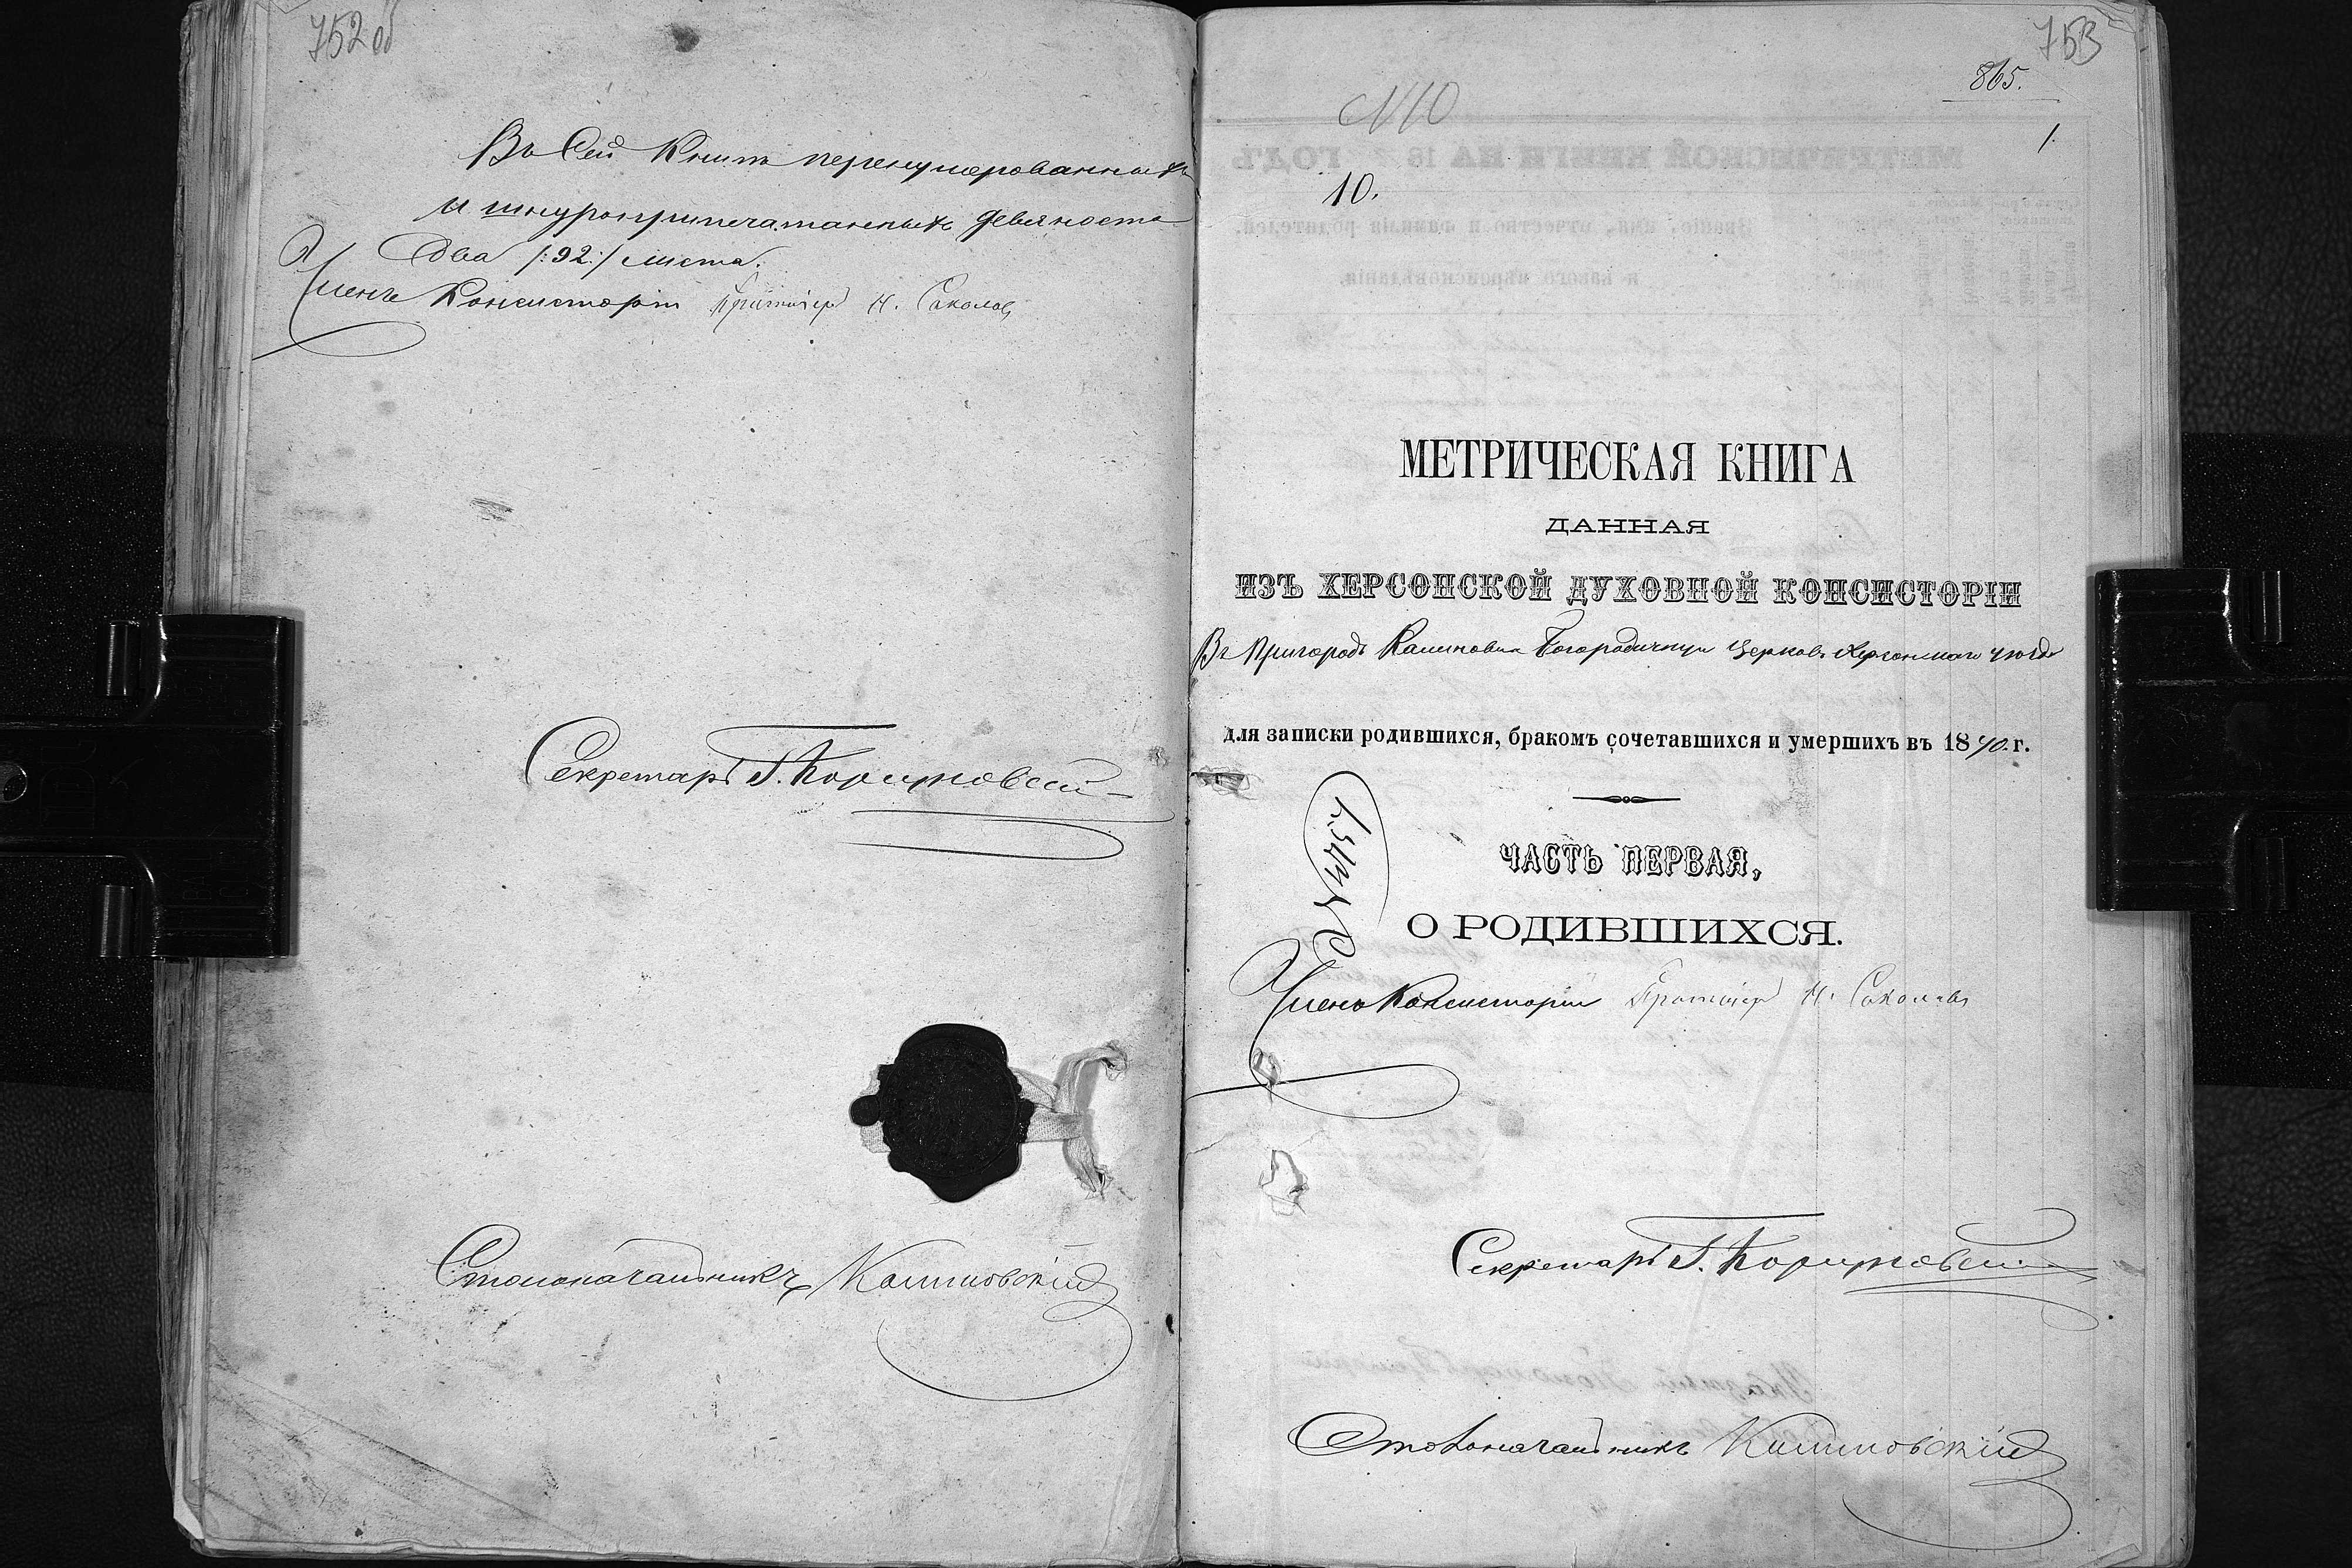 752 об
Въ Сей Книгѣ перенумерованныхъ
и шнуроприпечатанныхъ девяносто
два /:92:/ листа.
Членъ Консисторіи Протоіерей Н. Соколов
Секретарь
Столоначальникъ
753
865.
N10
1.
10.
МЕТРИЧЕСКАЯ КНИГА
ДАННАЯ
ИЗЪ ХЕРСОНСКОЙ ДУХОВНОЙ КОНСИСТОРІИ
Въ Пригородъ Калиновки Богородичную Церковь Херсонскаго уѣзда
для записки родившихся, бракомъ сочетавшихся и умершихъ въ 1890. г.
ЧАСТЬ ПЕРВАЯ,
О РОДИВШИХСЯ.
Членъ Консисторіи Протоіерей Н. Соколовъ
Секретарь
Столоначальникъ